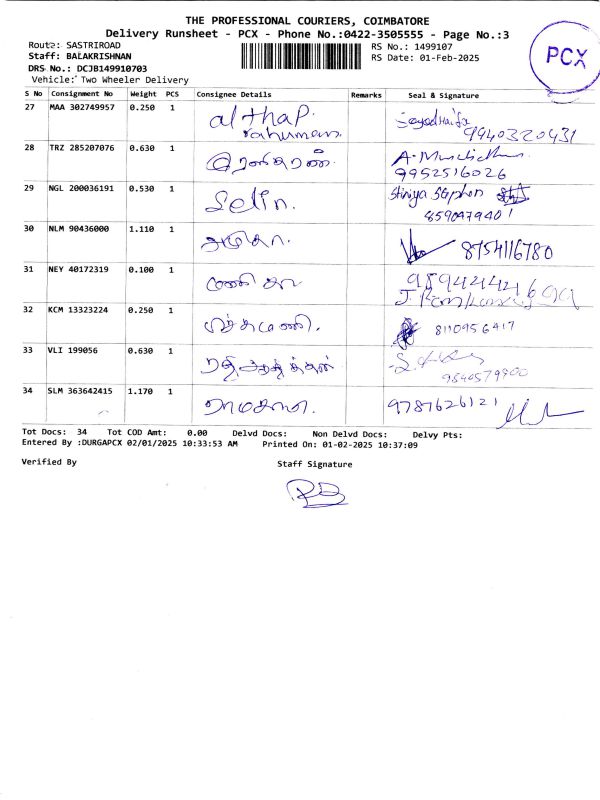 THE PROFESSIONAL COURIERS, COIMBATORE
Delivery Runsheet - PCX - Phone No.:0422-3505555 - Page No.:3
Route: SASTRIROAD
RS No.: 1499107
Staff: BALAKRISHNAN
RS Date: 01-Feb-2025
DRS No.: DCJB149910703
Vehicle: Two Wheeler Delivery
PCX
S No Consignment No Weight PCS Consignee Details Remarks Seal & Signature
27 MAA 302749957 0.250 1 althaP.
rahuman.
9940320431
28 TRZ 285207076 0.630 1
9952516026
29 NGL 200036191 0.530 1 Selin. Stephen
30 NLM 90436000 1.110 1 8754116780
31 NEY 40172319 0.100 1
32 KCM 13323224 0.250 1 8110956417
33 VLI 199056 0.630 1
34 SLM 363642415 1.170 1 9787626121
Tot Docs: 34 Tot COD Amt: 0.00 Delvd Docs: Non Delvd Docs: Delvy Pts:
Entered By :DURGAPCX 02/01/2025 10:33:53 AM Printed On: 01-02-2025 10:37:09
Verified By Staff Signature